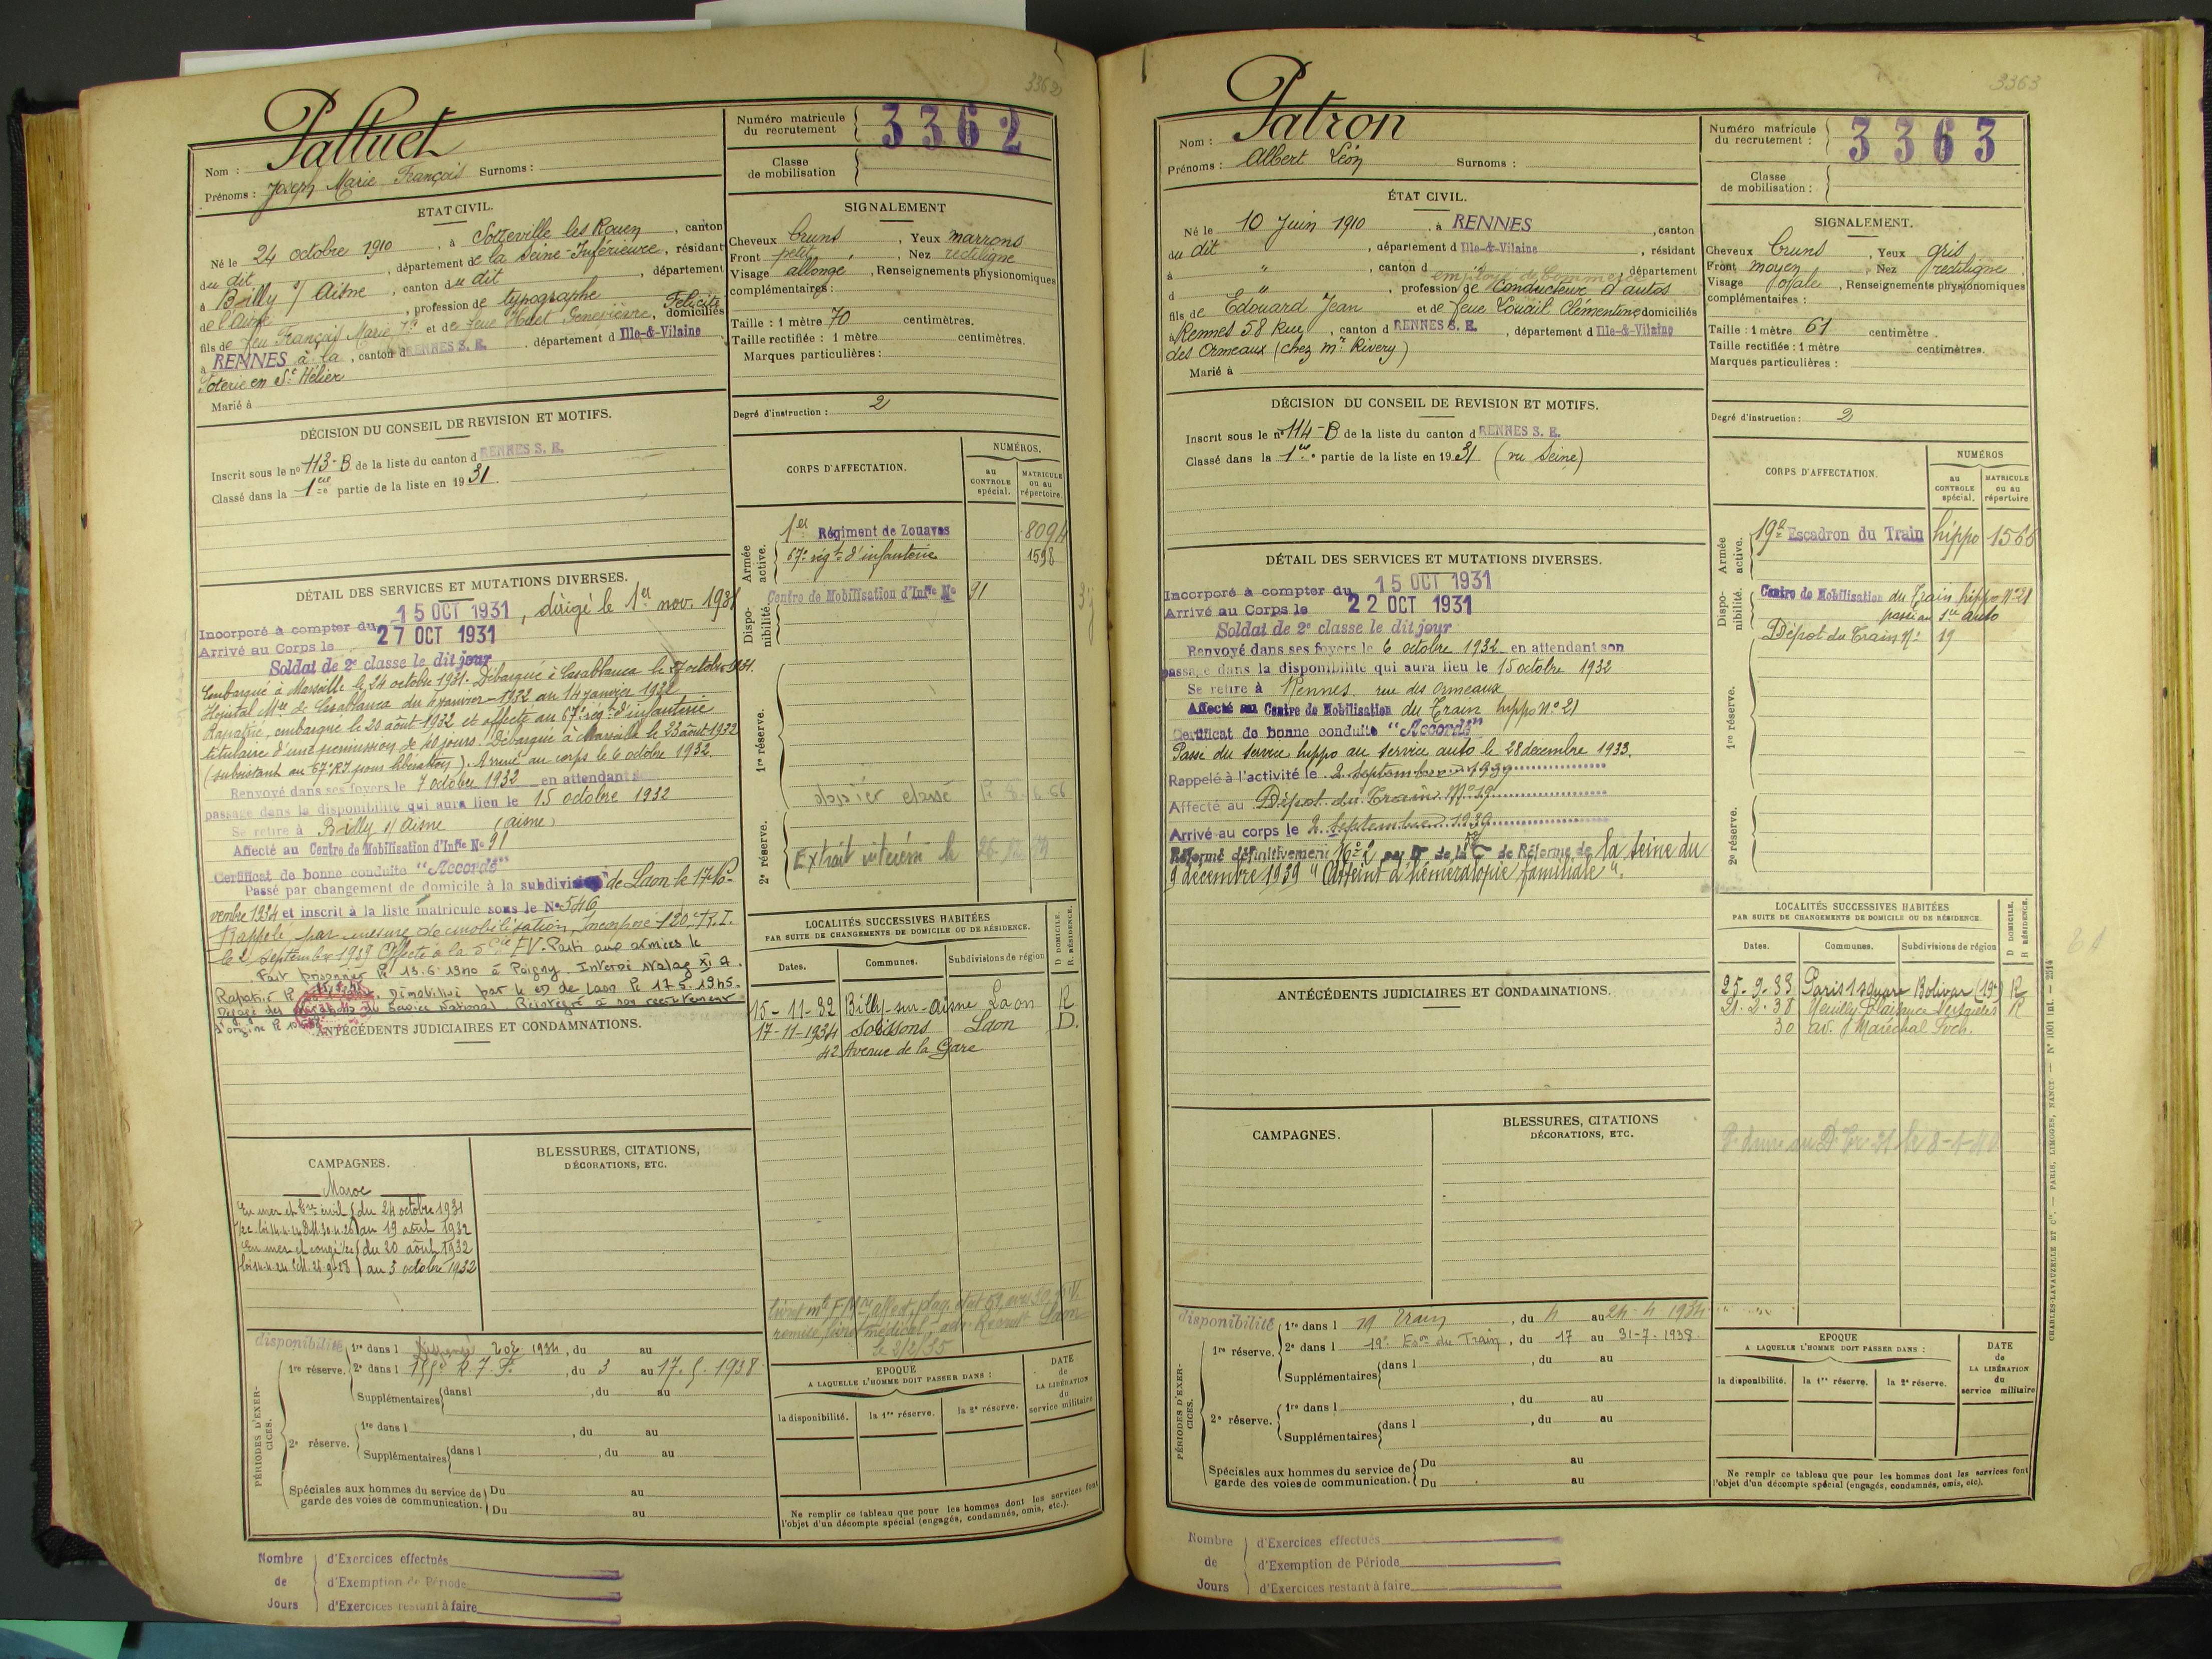 3362
Nom : Palluet
Prénoms : Joseph Marie François Surnoms :
Numéro matricule du recrutement 3362
Classe de mobilisation
ETAT CIVIL.
Né le 24 octobre 1910, à Sotteville les Rouen, canton
du dit, département de la Seine-Inférieure, résidant
à Billy s/ Aisne, canton du dit, département
de l'Aisne, profession de typographe
fils de feu François Marie Jh et de feue Huet Geneviève, Félicité domiciliés
à RENNES à la, canton d RENNES S. E., département d Ille-&-Vilaine
Poterie en St Hélier
Marié à
SIGNALEMENT
Cheveux bruns, Yeux marrons
Front petit, Nez rectiligne
Visage allongé, Renseignements physionomiques
complémentaires :
Taille : 1 mètre 70 centimètres.
Taille rectifiée : 1 mètre centimètres.
Marques particulières :
Degré d'instruction : 2
DÉCISION DU CONSEIL DE REVISION ET MOTIFS.
Inscrit sous le n° 113-B de la liste du canton d RENNES S. E.
Classé dans la 1ère partie de la liste en 1931.
CORPS D'AFFECTATION.
NUMÉROS.
au CONTROLE spécial.
MATRICULE ou au répertoire.
Armée active.
1er Régiment de Zouaves 8094
67e régt d'infanterie 1598
Dispo-nibilité.
Centre de Mobilisation d'Infie No 91
1re réserve.
dossier classé
2e réserve.
Extrait
DÉTAIL DES SERVICES ET MUTATIONS DIVERSES.
Incorporé à compter du 15 OCT 1931, dirigé le 1er nov. 1931
Arrivé au Corps le 27 OCT 1931
Soldat de 2e classe le dit jour
Embarqué à Marseille le 24 octobre 1931. Débarqué à Casablanca le 27 octobre 1931.
Hôpital Mre de Casablanca du 7 janvier 1932 au 14 janvier 1932
Rapatrié, embarqué le 20 août 1932 et affecté au 67e régt d'infanterie
titulaire d'une permission de 40 jours. Débarqué à Marseille le 23 août 1932
(subsistant au 67e RI pour libération). Arrivé au corps le 6 octobre 1932.
Renvoyé dans ses foyers le 7 octobre 1932 en attendant son
passage dans la disponibilité qui aura lieu le 15 octobre 1932
Se retire à Billy s/ Aisne (aisne)
Affecté au Centre de Mobilisation d'Infie No 91
Certificat de bonne conduite "Accordé"
Passé par changement de domicile à la subdivision de Laon le 17 No-
vembre 1934 et inscrit à la liste matricule sous le No 546
Rappelé par mesure de mobilisation, Incorporé 120e R.I.
le 2 septembre 1939 Affecté à la 5 Cie F.V. Parti aux armées le
Fait prisonnier le 13.6.1940 à Poigny. Interné Stalag XI A.
Rapatrié le Démobilisé par le CD de Laon le 17 5. 1945.
Dégagé des obligations du Service National Réintégré à son recrutement
d'origine le
ANTÉCÉDENTS JUDICIAIRES ET CONDAMNATIONS.
LOCALITÉS SUCCESSIVES HABITÉES
PAR SUITE DE CHANGEMENTS DE DOMICILE OU DE RÉSIDENCE.
D DOMICILE. R RÉSIDENCE.
Dates. Communes. Subdivisions de région
15-11-32 Billy-sur-Aisne Laon R
17-11-1934 Soissons Laon D.
42 Avenue de la Gare
CAMPAGNES.
Maroc
du 24 octobre 1931
au 19 août 1932
du 20 août 1932
au 3 octobre 1932
BLESSURES, CITATIONS, DÉCORATIONS, ETC.
le 2/2/35
PÉRIODES D'EXER-CICES.
disponibilité
1re réserve. 1re dans l 1934, du au
2e dans l, du 3 au 17. 5. 1938
Supplémentaires dans l, du au
2e réserve. 1re dans l, du au
Supplémentaires dans l, du au
Spéciales aux hommes du service de garde des voies de communication. Du au
Du au
EPOQUE
A LAQUELLE L'HOMME DOIT PASSER DANS :
la disponibilité. la 1re réserve. la 2e réserve.
DATE de LA LIBÉRATION du service militaire
Ne remplir ce tableau que pour les hommes dont les services font
l'objet d'un décompte spécial (engagés, condamnés, omis, etc.).
Nombre de Jours
d'Exercices effectués
d'Exemption de Période
d'Exercices restant à faire
3363
Nom : Patron
Prénoms : Albert Léon Surnoms :
Numéro matricule du recrutement : 3363
Classe de mobilisation :
ÉTAT CIVIL.
Né le 10 Juin 1910, à RENNES, canton
du dit, département d Ille-&-Vilaine, résidant
à ", canton d, département
employé de commerce
d ", profession de Conducteur d'autos
fils de Edouard Jean et de feue Louail Clémentine domiciliés
à Rennes 58 Rue, canton d RENNES S. E., département d Ille-&-Vilaine
des Ormeaux (chez Mr Rivery)
Marié à
SIGNALEMENT.
Cheveux bruns, Yeux gris
Front moyen, Nez rectiligne
Visage ovale, Renseignements physionomiques
complémentaires :
Taille : 1 mètre 61 centimètre.
Taille rectifiée : 1 mètre centimètres.
Marques particulières :
Degré d'instruction : 2
DÉCISION DU CONSEIL DE REVISION ET MOTIFS.
Inscrit sous le n° 114-B de la liste du canton d RENNES S. E.
Classé dans la 1ère partie de la liste en 1931 (vu Seine)
CORPS D'AFFECTATION.
NUMÉROS
au CONTROLE spécial.
MATRICULE ou au répertoire
Armée active.
19e Escadron du Train hippo 1566
Dispo-nibilité.
Centre de Mobilisation du Train hippo No 21
passé au sce auto
Dépot du Train No 19
1re réserve.
2e réserve.
DÉTAIL DES SERVICES ET MUTATIONS DIVERSES.
Incorporé à compter du 15 OCT 1931
Arrivé au Corps le 22 OCT 1931
Soldat de 2e classe le dit jour
Renvoyé dans ses foyers le 6 octobre 1932 en attendant son
passage dans la disponibilité qui aura lieu le 15 octobre 1932
Se retire à Rennes rue des Ormeaux
Affecté au Centre de Mobilisation du Train hippo No 21
Certificat de bonne conduite "Accordé"
Passé du service hippo au service auto le 28 décembre 1933.
Rappelé à l'activité le 2 Septembre 1939
Affecté au Dépot du Train No 19
Arrivé au corps le 2 Septembre 1939
Réformé définitivement No 2 par Don de la Con de Réforme de la Seine du
9 décembre 1939 "Atteint d'héméralopie familiale".
ANTÉCÉDENTS JUDICIAIRES ET CONDAMNATIONS.
LOCALITÉS SUCCESSIVES HABITÉES
PAR SUITE DE CHANGEMENTS DE DOMICILE OU DE RÉSIDENCE.
D DOMICILE. R RÉSIDENCE.
Dates. Communes. Subdivisions de région
25-9-33 Paris 1 square Bolivar (19e) R
21-2-38 Neuilly Plaisance R
30 av. Maréchal Foch.
CAMPAGNES.
BLESSURES, CITATIONS DÉCORATIONS, ETC.
PÉRIODES D'EXER-CICES.
disponibilité
1re réserve. 1re dans l 19 Train, du 4 au 24-4-1934
2e dans l 19e Eson du Train, du 17 au 31-7-1938
Supplémentaires dans l, du au
2e réserve. 1re dans l, du au
Supplémentaires dans l, du au
Spéciales aux hommes du service de garde des voies de communication. Du au
Du au
EPOQUE
A LAQUELLE L'HOMME DOIT PASSER DANS :
la disponibilité. la 1re réserve. la 2e réserve.
DATE de LA LIBÉRATION du service militaire
Ne remplir ce tableau que pour les hommes dont les services font
l'objet d'un décompte spécial (engagés, condamnés, omis, etc).
CHARLES-LAVAUZELLE ET Cie. — PARIS, LIMOGES, NANCY — N° 1001 int. — 2514
Nombre de Jours
d'Exercices effectués
d'Exemption de Période
d'Exercices restant à faire